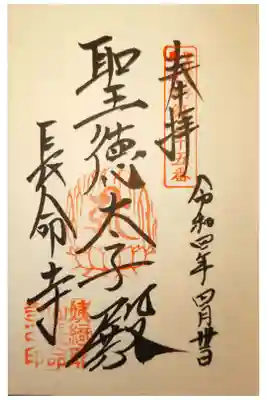 奉拝
令和四年四月廿日
聖徳太子殿
長命寺